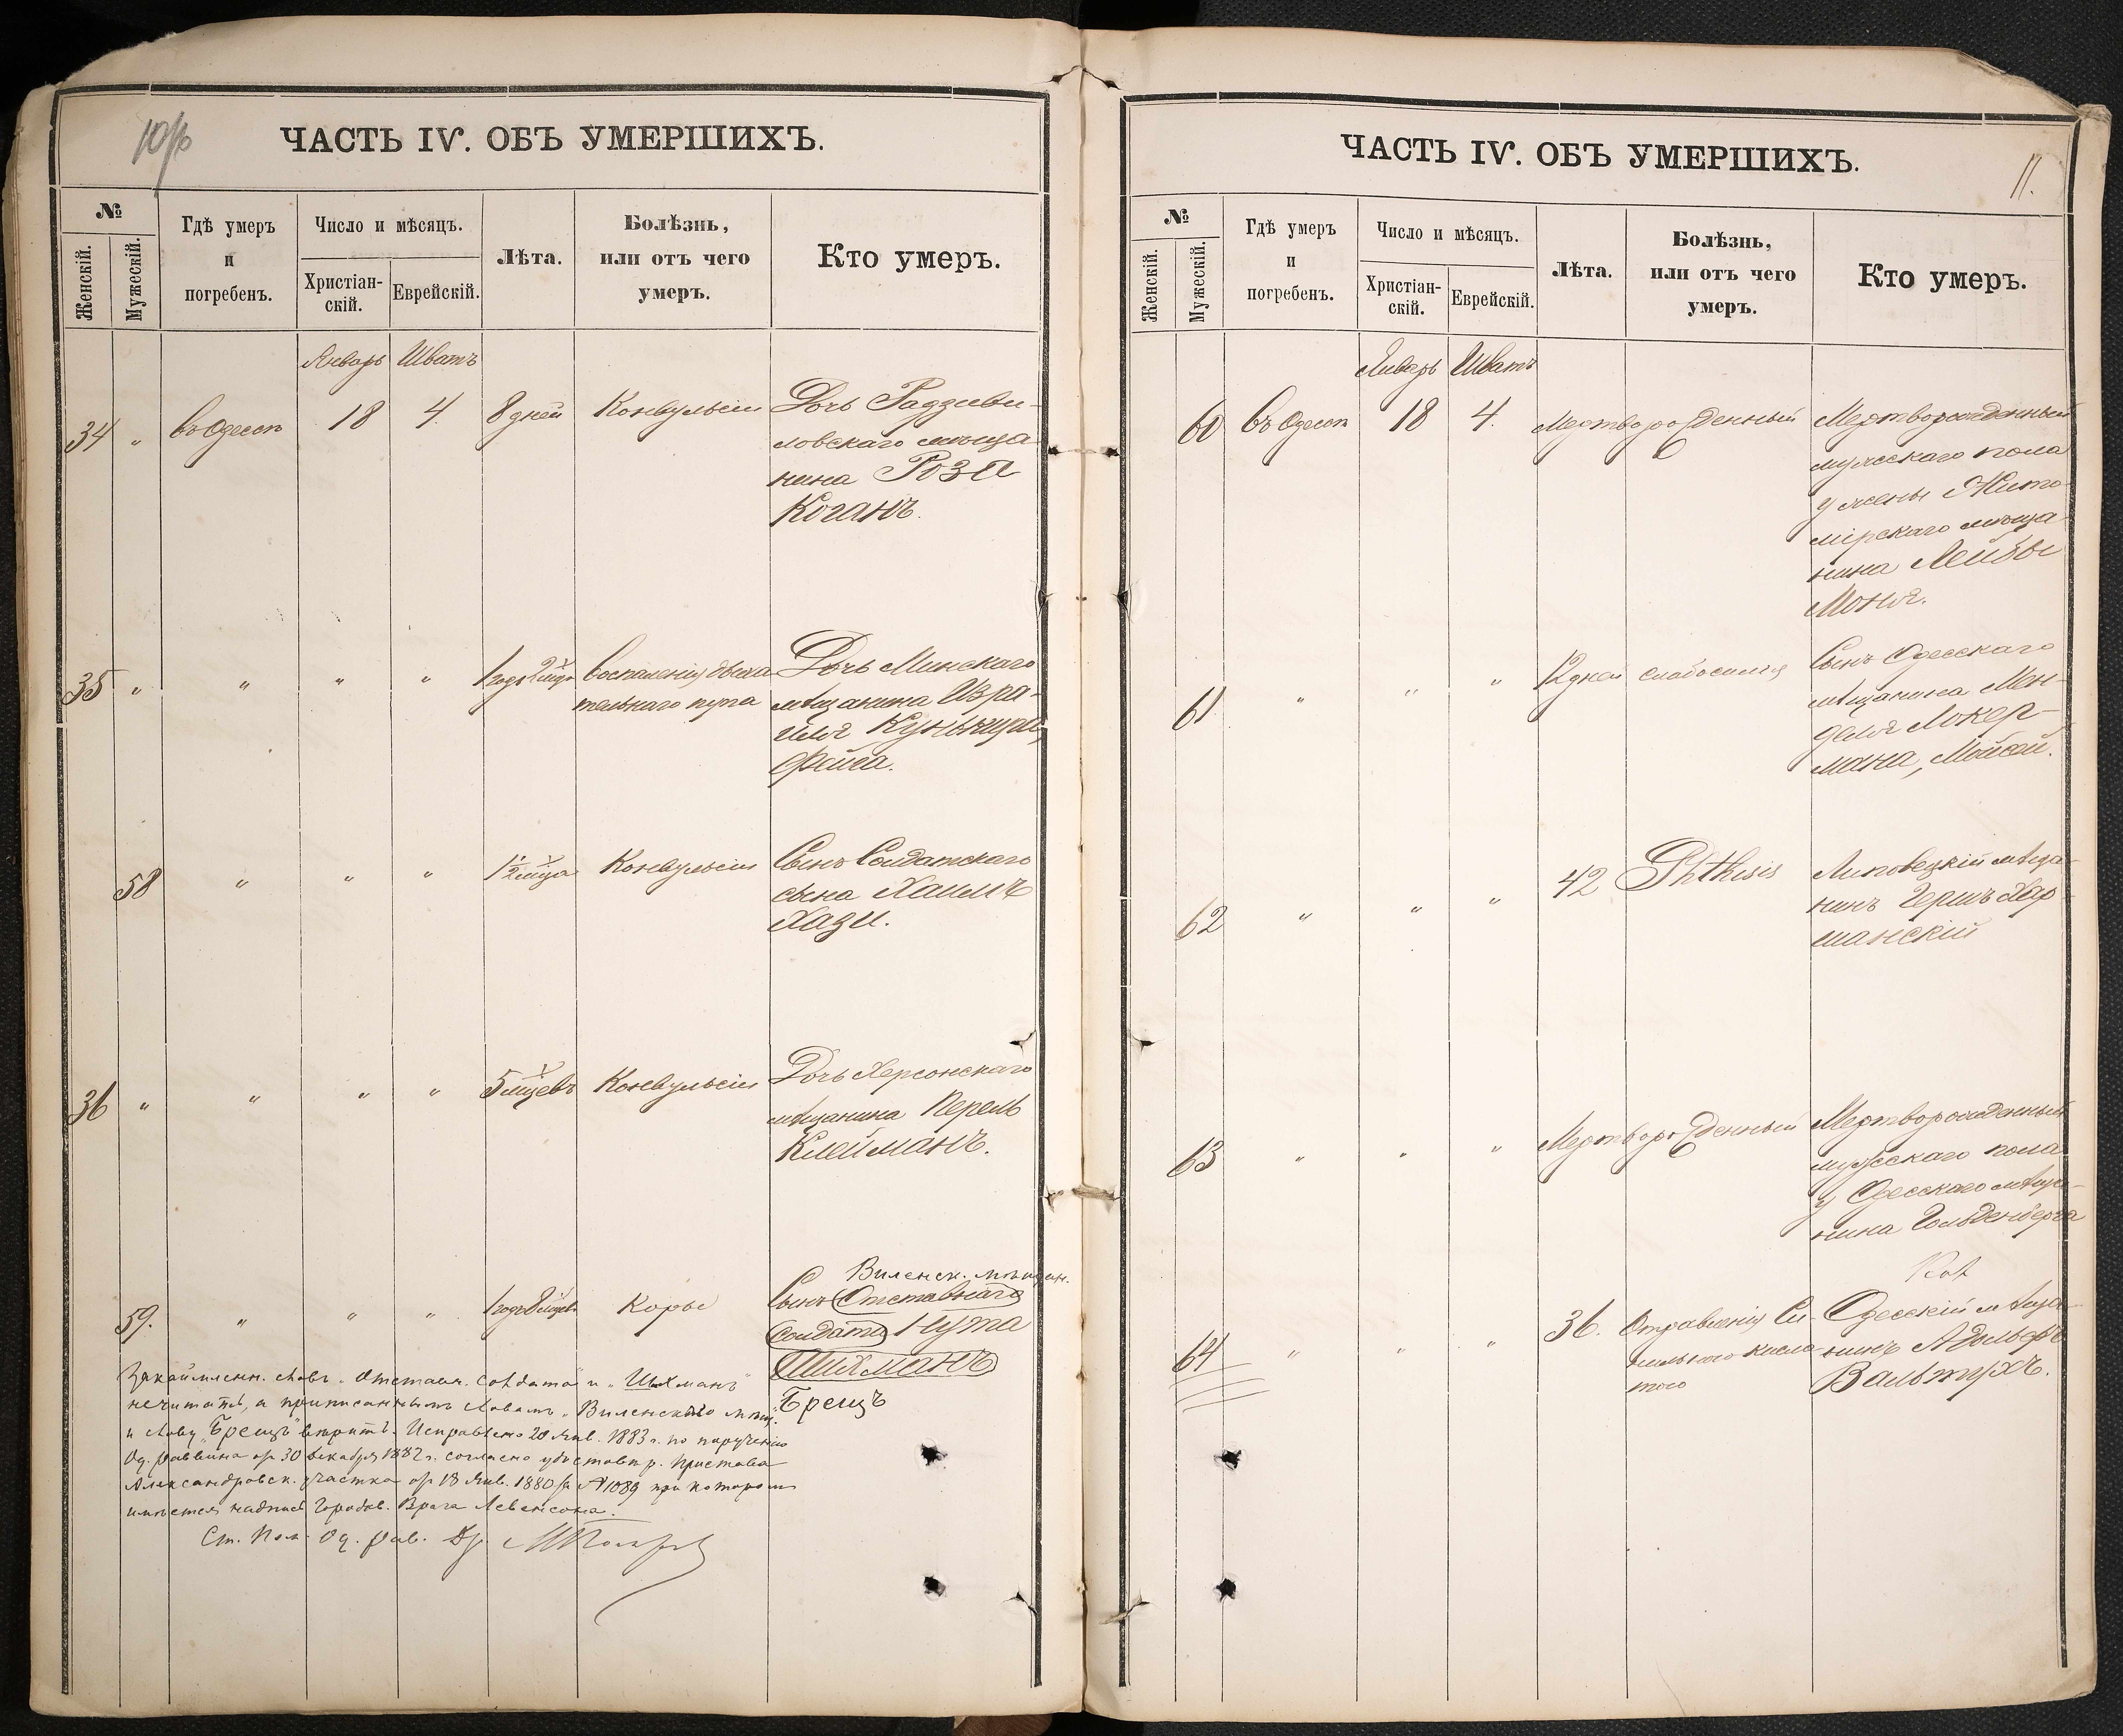 10/б
ЧАСТЬ IV. ОБЪ УМЕРШИХЪ.
№
Женскій.
Мужескій.
Гдѣ умеръ
и
погребенъ.
Число и мѣсяцъ.
Христіан-
скій.
Еврейскій.
Лѣта.
Болѣзнь,
или отъ чего
умеръ.
Кто умеръ.
Январь Шватъ
34 „ въ Одессѣ 18 4. 8 дней Конвульсіи Дочь Радзиви-
ловскаго мѣща
нина Роза
Коганъ.
35 „ „ „ „ 1 годъ 2 мѣца Воспаленія дыха
тельнаго пути
Дочь Минскаго
мѣщанина Изра-
иля
Файга.
58 „ „ „ 1½ мѣца Конвульсіи Сынъ Солдатскаго
сына Хаимъ
Хази.
36 „ „ „ „ 5 мѣцевъ Конвульсіи Дочь Херсонскаго
мѣщанина Перель
Клейманъ.
Виленск. мѣщан.
59. „ „ „ 1 годъ 8 мѣцевъ Корь Сынъ Отставнаго
Солдата Нута
Шихманъ
Брецъ
Закаймленн. слова „Отставн. Солдата" и „Шихманъ"
нечитать, а приписаннымъ словамъ „Виленскаго мѣщ."
и слову „Брецъ" вѣрить. Исправлено 20 Янв. 1883 г. по порученію
Од. раввина от 30 декабря 1882 г. согласно удостовѣр. Пристава
Александровск. участка от 18 Янв. 1880 за № 1089 при которомъ
имѣется надпись Городов. Врача Левенсона.
Ст. Пом. Од. рав. Др.
ЧАСТЬ IV. ОБЪ УМЕРШИХЪ.
11.
№
Женскій.
Мужескій.
Гдѣ умеръ
и
погребенъ.
Число и мѣсяцъ.
Христіан-
скій.
Еврейскій.
Лѣта.
Болѣзнь,
или отъ чего
умеръ.
Кто умеръ.
Январь Шватъ
60 въ Одессѣ 18 4. Мертворожденный Мертворожденный
мужескаго пола
у жены Жито
мірскаго мѣща-
нина Лейбы
Монъ.
61 „ „ „ 12 дней слабосилія Сынъ Одесскаго
мѣщанина Мен-
деля Локер-
мана, Мойсей.
62 „ „ „ 42 Phthisis Липовецкій мѣща-
нинъ Гершъ Хар-
шанскій
63 „ „ „ Мертворожденный Мертворожденный
мужескаго пола
у Одесскаго мѣща-
нина Гольденберга
64 „ „ „ 36. Отравленія Си-
нильного кисло-
тою
Одесскій мѣща-
нинъ Адольфъ
Вальтухъ.